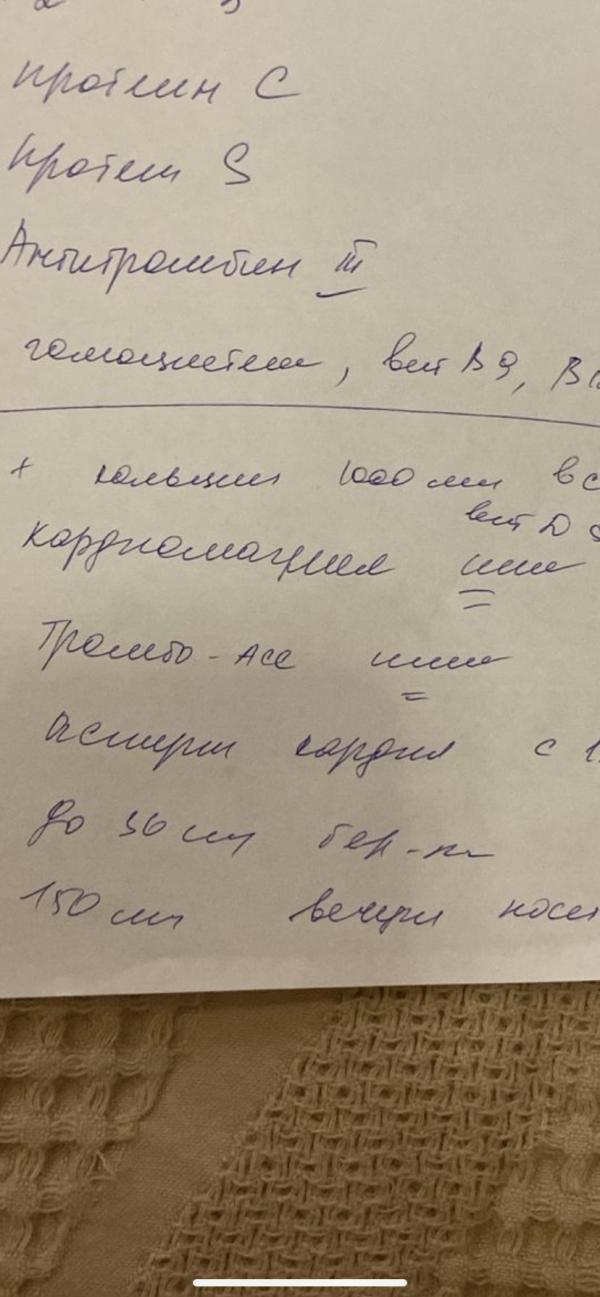 протеин С
протеин S
Антитромбин III
гомоцистеин, вит B9, B
+ кальций 1000 мг в с
вит D
Кардиомагнил или
Тромбо-Асс или
Аспирин кардио с 1
до 36
150 мг вечером после